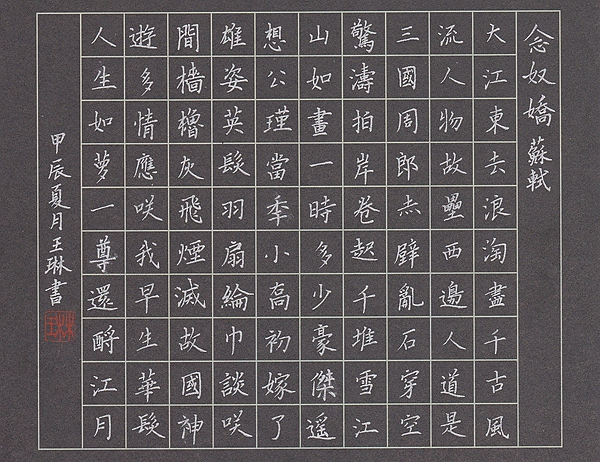 念奴嬌 蘇軾
大江東去浪淘盡千古風
流人物故壘西邊人道是
三國周郎赤壁亂石穿空
驚濤拍岸卷起千堆雪江
山如畫一時多少豪傑遥
想公瑾當秊小喬初嫁了
雄姿英髮羽扇綸巾談咲
間檣櫓灰飛煙滅故國神
遊多情應咲我早生華髮
人生如夢一尊還酹江月
甲辰夏月王琳書
王琳